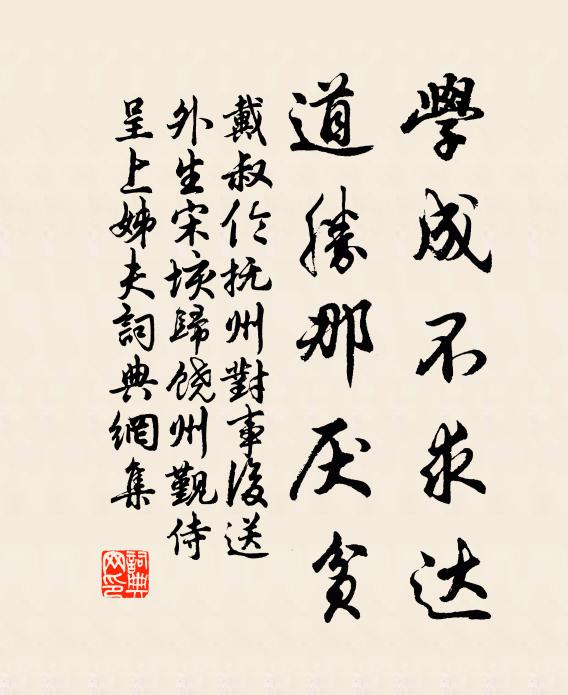 學成不求达
道勝那厌贫
戴叔伦抚州對事後送
外生宋垓歸饶州觐侍
呈上姊夫詞典網集
詞典
网印